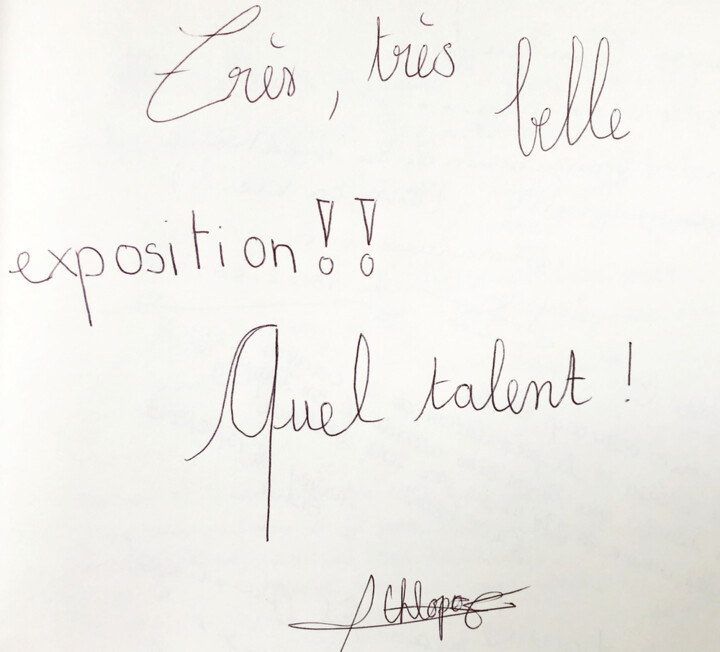 Très, très belle
exposition!!
Quel talent !